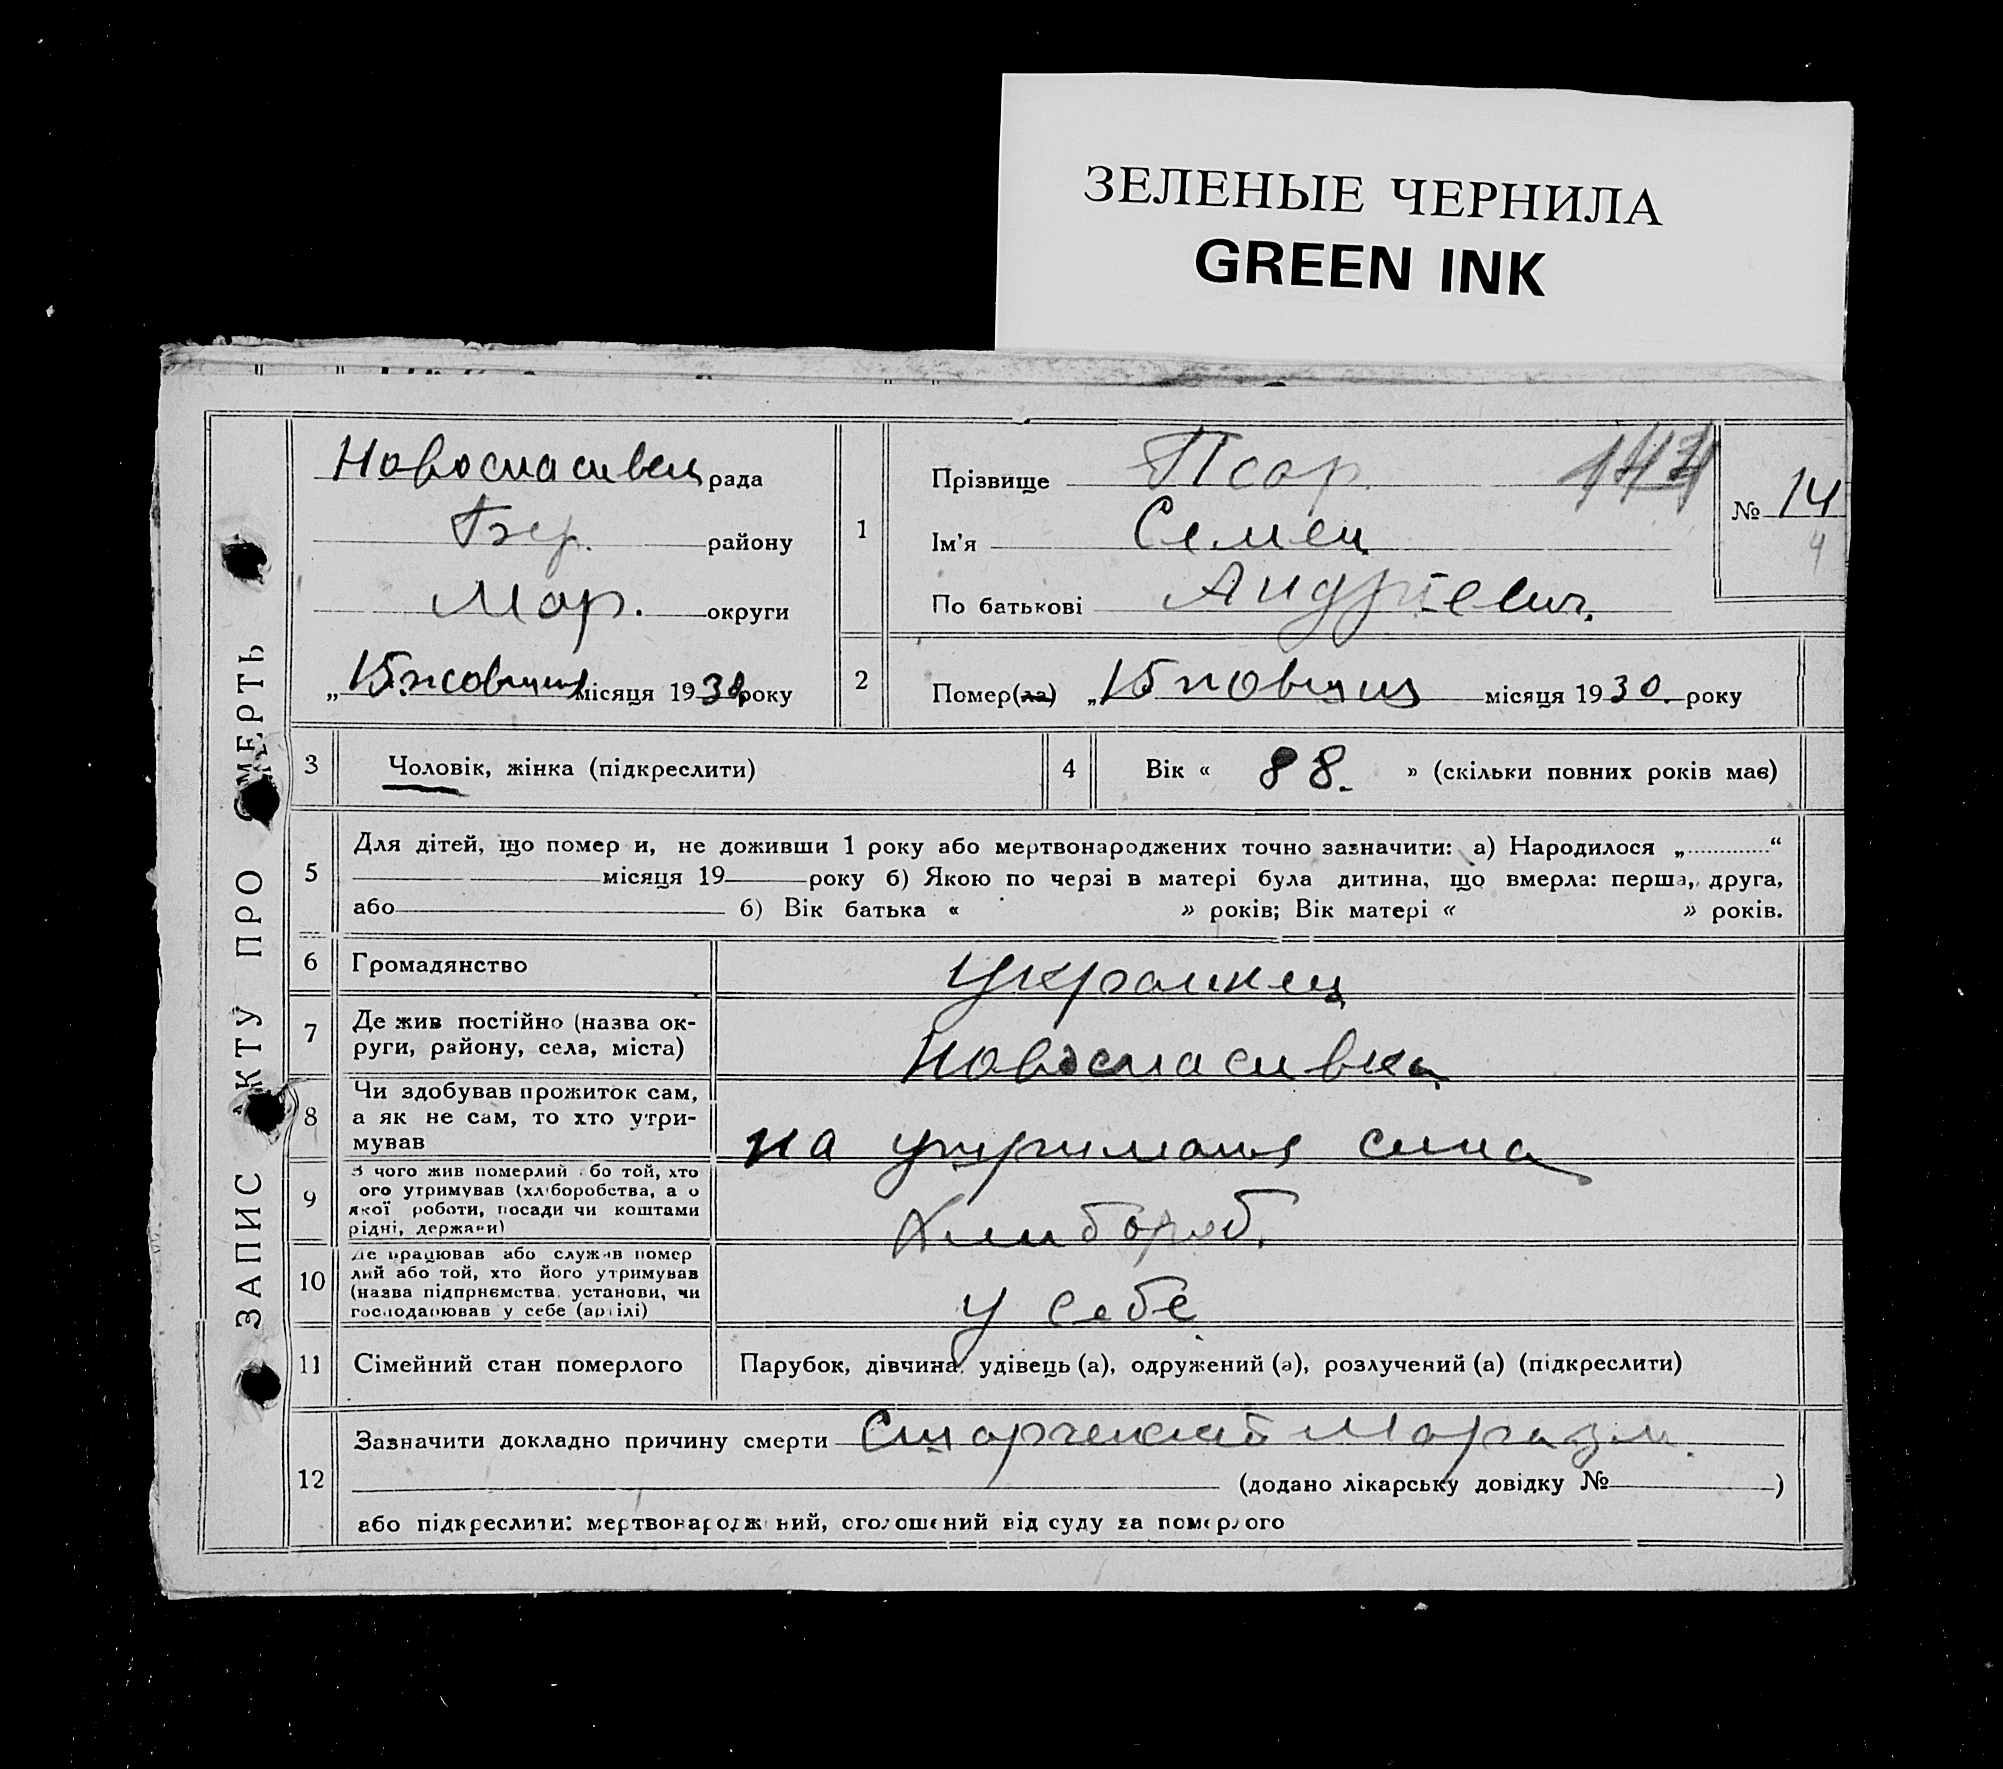 ЗЕЛЕНЫЕ ЧЕРНИЛА
GREEN INK
ЗАПИС АКТУ ПРО СМЕРТЬ
Новоспасивец рада
Бер. району
Мар. округи
„15 жовтня місяця 1930 року
1
Прізвище Псар. 144
Ім'я Семен
По батькові Андрієвич.
№ 14
4
2
Помер(ла) „15 жовтня місяця 1930. року
3 Чоловік, жінка (підкреслити)
4 Вік « 88. » (скільки повних років має)
5 Для дітей, що померли, не доживши 1 року або мертвонароджених точно зазначити: а) Народилося „ “
місяця 19 року б) Якою по черзі в матері була дитина, що вмерла: перша, друга,
або б) Вік батька « » років; Вік матері « » років.
6 Громадянство украинец
7 Де жив постійно (назва ок-
руги, району, села, міста) Новоспасивка
8 Чи здобував прожиток сам,
а як не сам, то хто утри-
мував на утриманя сина
9 З чого жив померлий або той, хто
його утримував (хліборобства, або
якої роботи, посади чи коштами
рідні, держави) Хлибороб.
10 Де працював або служив помер
лий або той, хто його утримував
(назва підприємства, установи, чи
господарював у себе (артілі) у себе
11 Сімейний стан померлого Парубок, дівчина, удівець (а), одружений (а), розлучений (а) (підкреслити)
12 Зазначити докладно причину смерти Старческий Маразм.
(додано лікарську довідку № )
або підкреслити: мертвонароджений, оголошений від суду за померлого